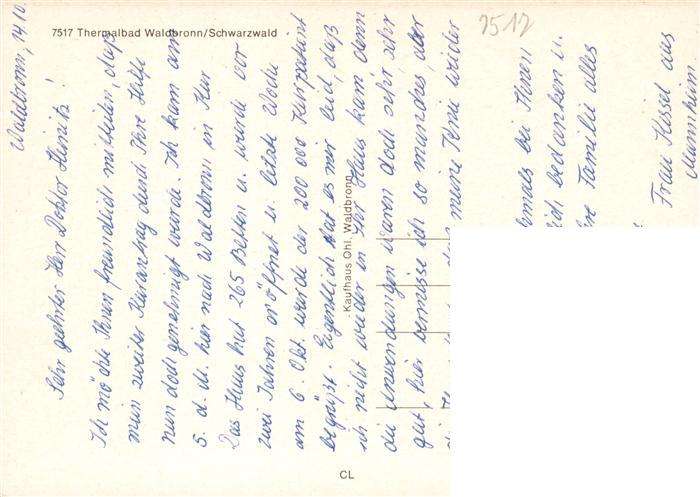 7517 Thermalbad Waldbronn/Schwarzwald
7517
Kaufhaus Ohl, Waldbronn
CL
Waldbronn, 14.10.
Sehr geehrter Herr Doktor Heinitz!
Ich möchte Ihnen freundlich mitteilen, daß
mein zweiter Kurantrag durch Ihre Hilfe
nun doch genehmigt wurde. Ich kam am
5. d. M. hier nach Waldbronn in Kur
Das Haus hat 265 Betten u. wurde vor
zwei Jahren eröffnet u. letzte Woche
am 6. Okt. wurde der 200 000 Kurpatient
begrüßt. Eigentlich tat es mir leid, daß
ich nicht wieder in Ihr Haus kam denn
die Anwendungen waren doch sehr sehr
gut, hier vermisse ich so manches, aber
meine Knie wieder
mals bei Ihnen
ich bedanken u.
Familie alles
Frau Kissel aus
Mannheim